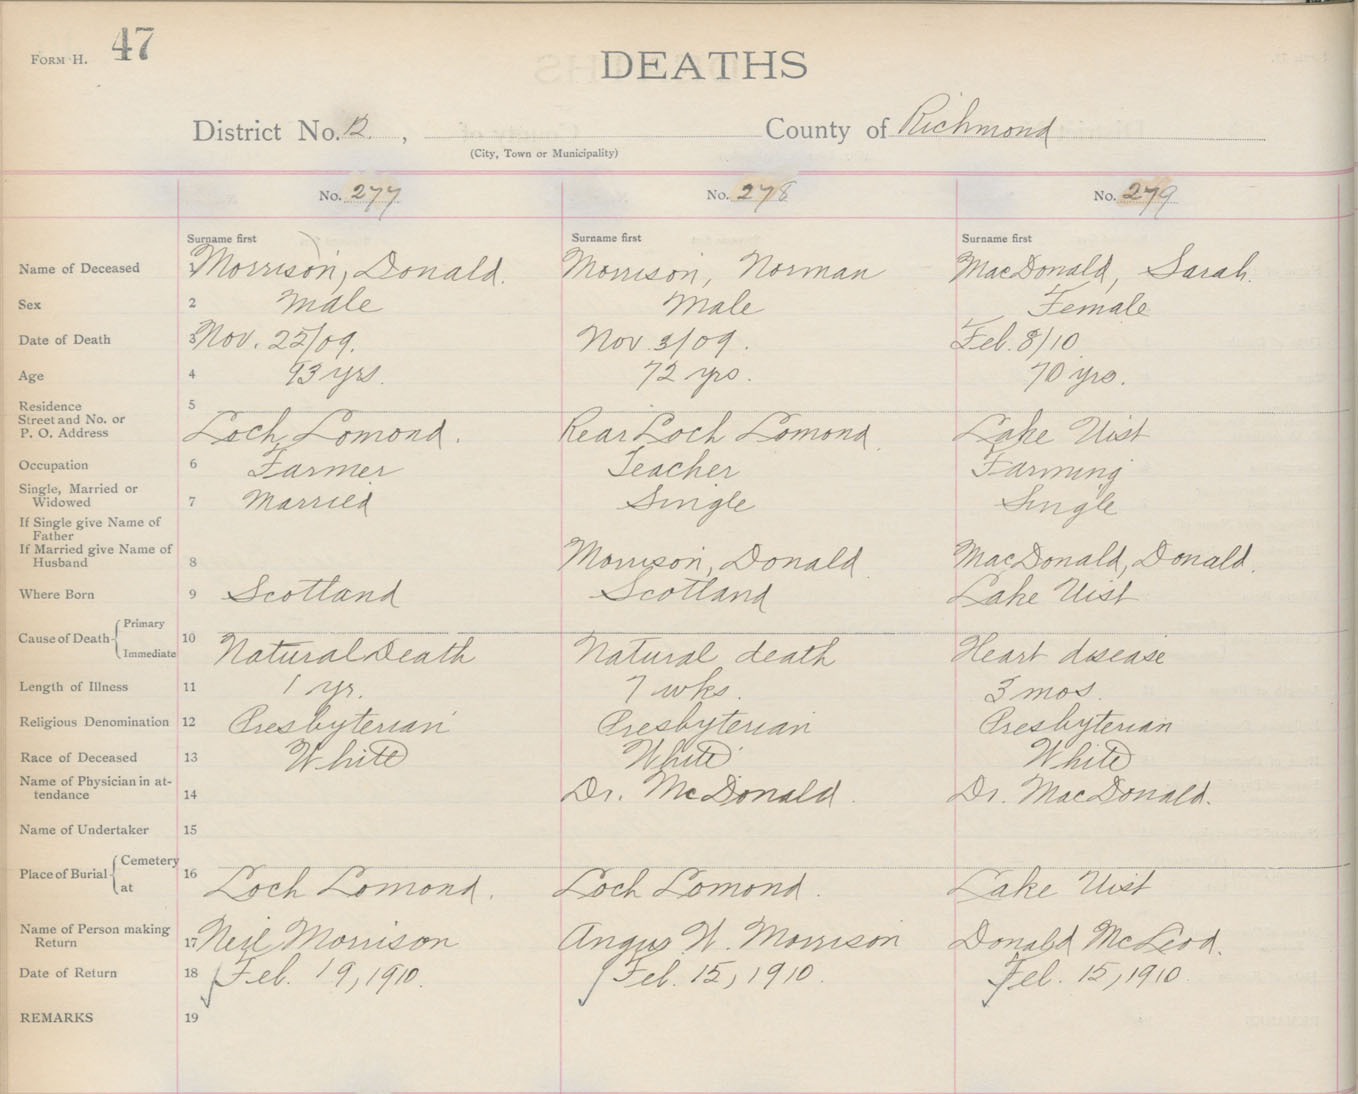 FORM H. 47
DEATHS
District No. 12. , County of Richmond
(City, Town or Municipality)
No. 277 No. 278 No. 279
Surname first Surname first Surname first
Name of Deceased 1 Morrison, Donald. Morrison, Norman MacDonald, Sarah.
Sex 2 Male Male Female
Date of Death 3 Nov. 25/09. Nov 3/09. Feb. 8/10
Age 4 93 yrs. 72 yrs. 70 yrs.
Residence 5
Street and No. or
P. O. Address Loch Lomond. Rear Loch Lomond. Lake Uist
Occupation 6 Farmer Teacher Farming
Single, Married or
Widowed 7 Married Single Single
If Single give Name of
Father
If Married give Name of
Husband 8 Morrison, Donald. MacDonald, Donald.
Where Born 9 Scotland Scotland Lake Uist
Cause of Death Primary 10
Immediate Natural Death Natural death Heart disease
Length of Illness 11 1 yr. 7 wks. 3 mos.
Religious Denomination 12 Presbyterian Presbyterian Presbyterian
Race of Deceased 13 White White White
Name of Physician in at-
tendance 14 Dr. McDonald. Dr. MacDonald.
Name of Undertaker 15
Place of Burial Cemetery 16
at Loch Lomond. Loch Lomond. Lake Uist
Name of Person making
Return 17 Neil Morrison Angus W. Morrison Donald McLeod.
Date of Return 18 Feb. 19, 1910. Feb. 15, 1910. Feb. 15, 1910
REMARKS 19